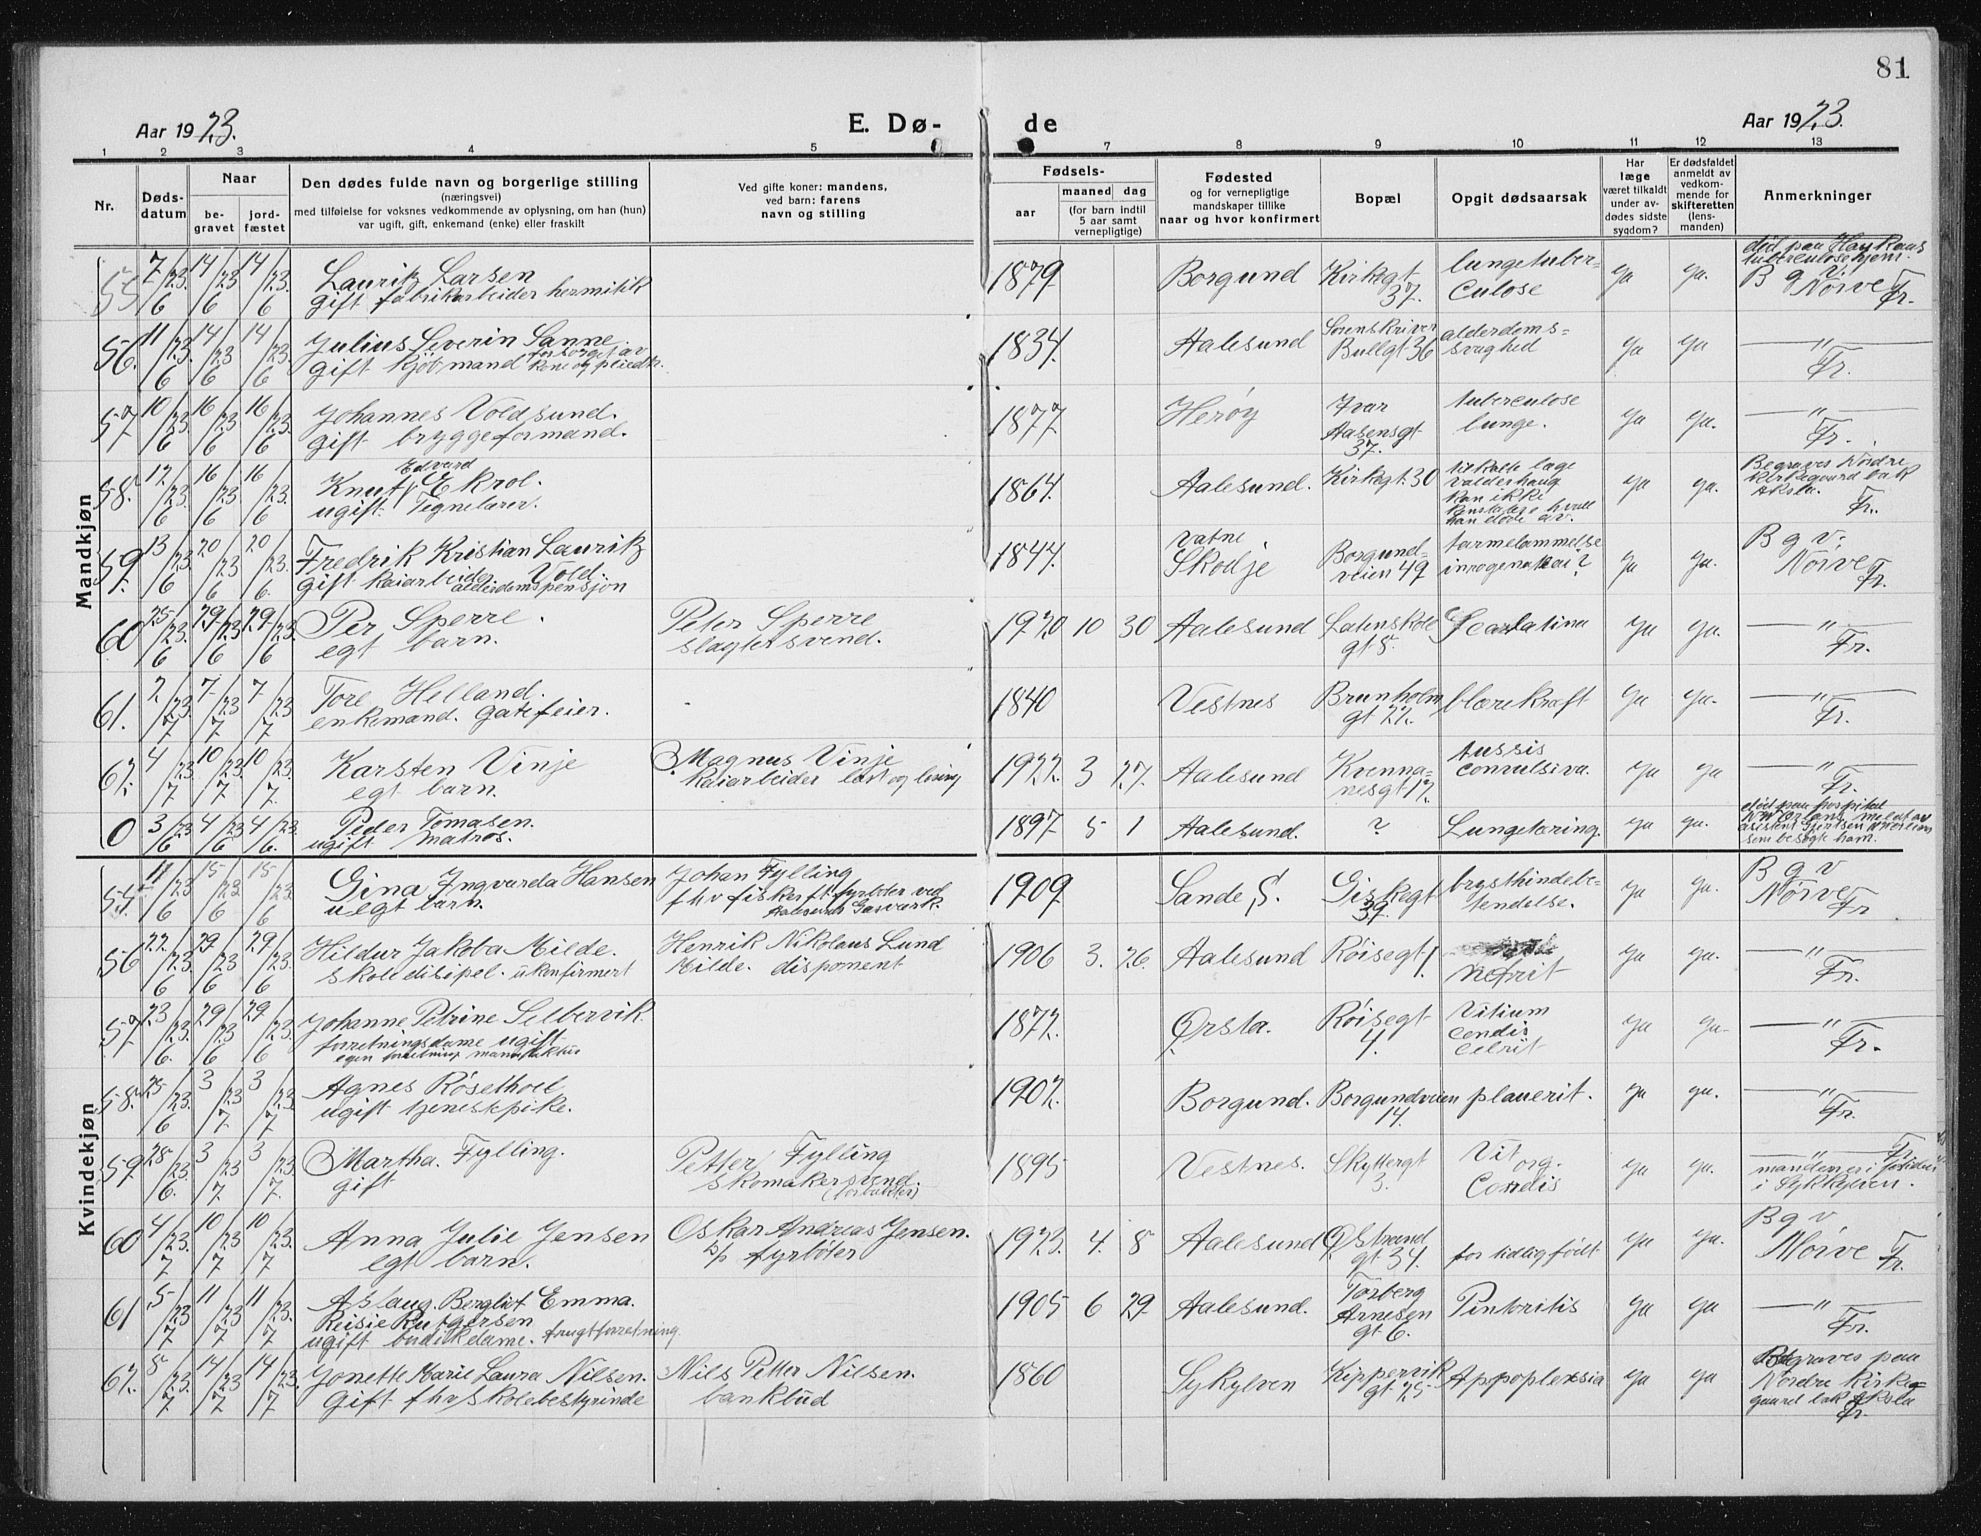 81
Aar 1923.
E. Dø-
de
Aar 1923.
1 2 3 4 5 7 8 9 10 11 12 13
Nr.
Døds-
datum
Naar
be-
gravet
jord-
fæstet
Den dødes fulde navn og borgerlige stilling
(næringsvei)
med tilføielse for voksnes vedkommende av oplysning, om han (hun)
var ugift, gift, enkemand (enke) eller fraskilt
Ved gifte koner: mandens,
ved barn: farens
navn og stilling
Fødsels-
aar
maaned dag
(for barn indtil
5 aar samt
vernepligtige)
Fødested
og for vernepligtige
mandskaper tillike
naar og hvor konfirmert
Bopæl
Opgit dødsaarsak
Har
læge
været tilkaldt
under av-
dødes sidste
sygdom?
Er dødsfaldet
anmeldt av
vedkom-
mende for
skifteretten
(lens-
manden)
Anmerkninger
Mandkjøn
55 7/6 23. 14/6 23 14/6 23. Lauritz Larsen 1879 Borgund Kirkegt. 37. lungetuber-
culose ja ja.
gift fabrikarbeider hermitik
tuberculosehjem.
B g v.
Nørve Fr.
56. 11/6 23. 14/6 23 14/6 23. Julius Severin Sanne. 1834. Aalesund Sorenskriver
Bullgt 36 alderdoms-
svaghed ja ja — " —
Fr.
gift kjøbmand forsørget av
kone og
57 10/6 23. 16/6 23 16/6 23. Johannes Voldsund. 1877 Herøy Ivar
Aasensgt
37. tuberculose
lunge. ja ja. — " —
Fr.
gift bryggeformand.
58. 12/6 23. 16/6 23 16/6 23. Knut Edvard Ekrol. 1864. Aalesund. Kirkegt. 30 tilkalte læge
Valderhaug
kan ikke
hvad
han døde av. ja ja. Begraves Nordre
kirkegaard bak
Aksla.
Fr.
ugift. Tegnelærer.
59. 13/6 23. 20/6 23 20/6 23. Fredrik Kristian Lauritz
Vold. 1844. Vatne
Skodje Borgund-
veien 49 tarmelammelse
ja ja. B g v.
Nørve Fr.
gift kaiarbeider. alderdomspensjon
60 25/6 23. 29/6 23 29/6 23. Per Sperre. Peter Sperre
slagtersvend. 1920 10 30 Aalesund Latinskole
gt 8. Scarlatina ja ja. — " —
Fr.
egt barn.
61. 2/7 23. 7/7 23 7/7 23 Tore Helland. 1840 Vestnes Brunholm
gt 22. blærekræft ja ja. — " —
Fr.
enkemand. gatefeier.
62. 4/7 23 10/7 23 10/7 23. Karsten Vinje Magnus Vinje
kaiarbeider lost og losing 1922. 3 27. Aalesund Kvenna-
nesgt 12. tussis
convulsiva. ja ja — " —
Fr.
egt barn.
0 3/6 23 4/6 23 4/6 23. Peder Tomasen. 1897 5 1 Aalesund. ? Lungetæring. ja ja. død paa hospital
ugift matros.
som besøgte ham.
Kvindekjøn
55 11/6 23 15/6 23 15/6 23 Gina Ingvarda Hansen Johan Fylling
fhv fisker fyrbøter ved
Aalesunds Gasverk. 1909 Sande, S. Giskegt
39. brysthindebe-
tendelse. ja ja. B g v
Nørve Fr
uegt barn.
56 22/6 23. 29/6 23 29/6 23. Hildur Jakoba Milde. Henrik Nikolaus Lund
Milde. disponent 1906 3. 26. Aalesund Røisegt 1.
nefrit ja ja. — " —
Fr.
skoledisipel. ukonfirmert
57 23/6 23. 29/6 23 29/6 23. Johanne Petrine Selbervik. 1872. Ørsta. Røisegt
4. Vitium
ja ja. — " —
Fr.
forretningsdame ugift
egen forretning manufaktur
58. 25/6 23. 3/7 23 3/7 23. Agnes Røsethoel 1902. Borgund. Borgundveien
44. plauerit. ja ja. — " —
Fr.
ugift tjenestepike.
59 28/6 23 3/7 23 3/7 23. Martha. Fylling. Petter Fylling
skomakersvend. 1895 Vestnes. Skyttergt
3. Vit org.
Cordis ja ja. — " — Fr.
manden er i
i Sykkylven.
gift
60 4/7 23. 10/7 23 10/7 23. Anna Julie Jensen Oskar Andreas Jensen.
s/s fyrbøter 1923. 4. 8 Aalesund Østrand
gt 34. for tidlig født. ja ja. B g v
Nørve Fr.
egt barn.
61 5/7 23 11/7 23 11/7 23. Aslaug. Bergliot Emma. 1905 6 29. Aalesund. Torberg
Arnesen
gt 6. ja ja — " —
Fr.
Reisie Rutgersen
ugift butikdame. frugtforretning
62. 8/7 23. 14/7 23 14/7 23. Jonette Marie Laura Nilsen. Nils Petter Nilsen.
bankbud 1860 Sykylven Kippervik
gt. 25 Appoplexsia ja ja Begraves paa
Nordre kirke-
gaard bak Aksla
Fr.
Gift fhv Skolebestyrinde